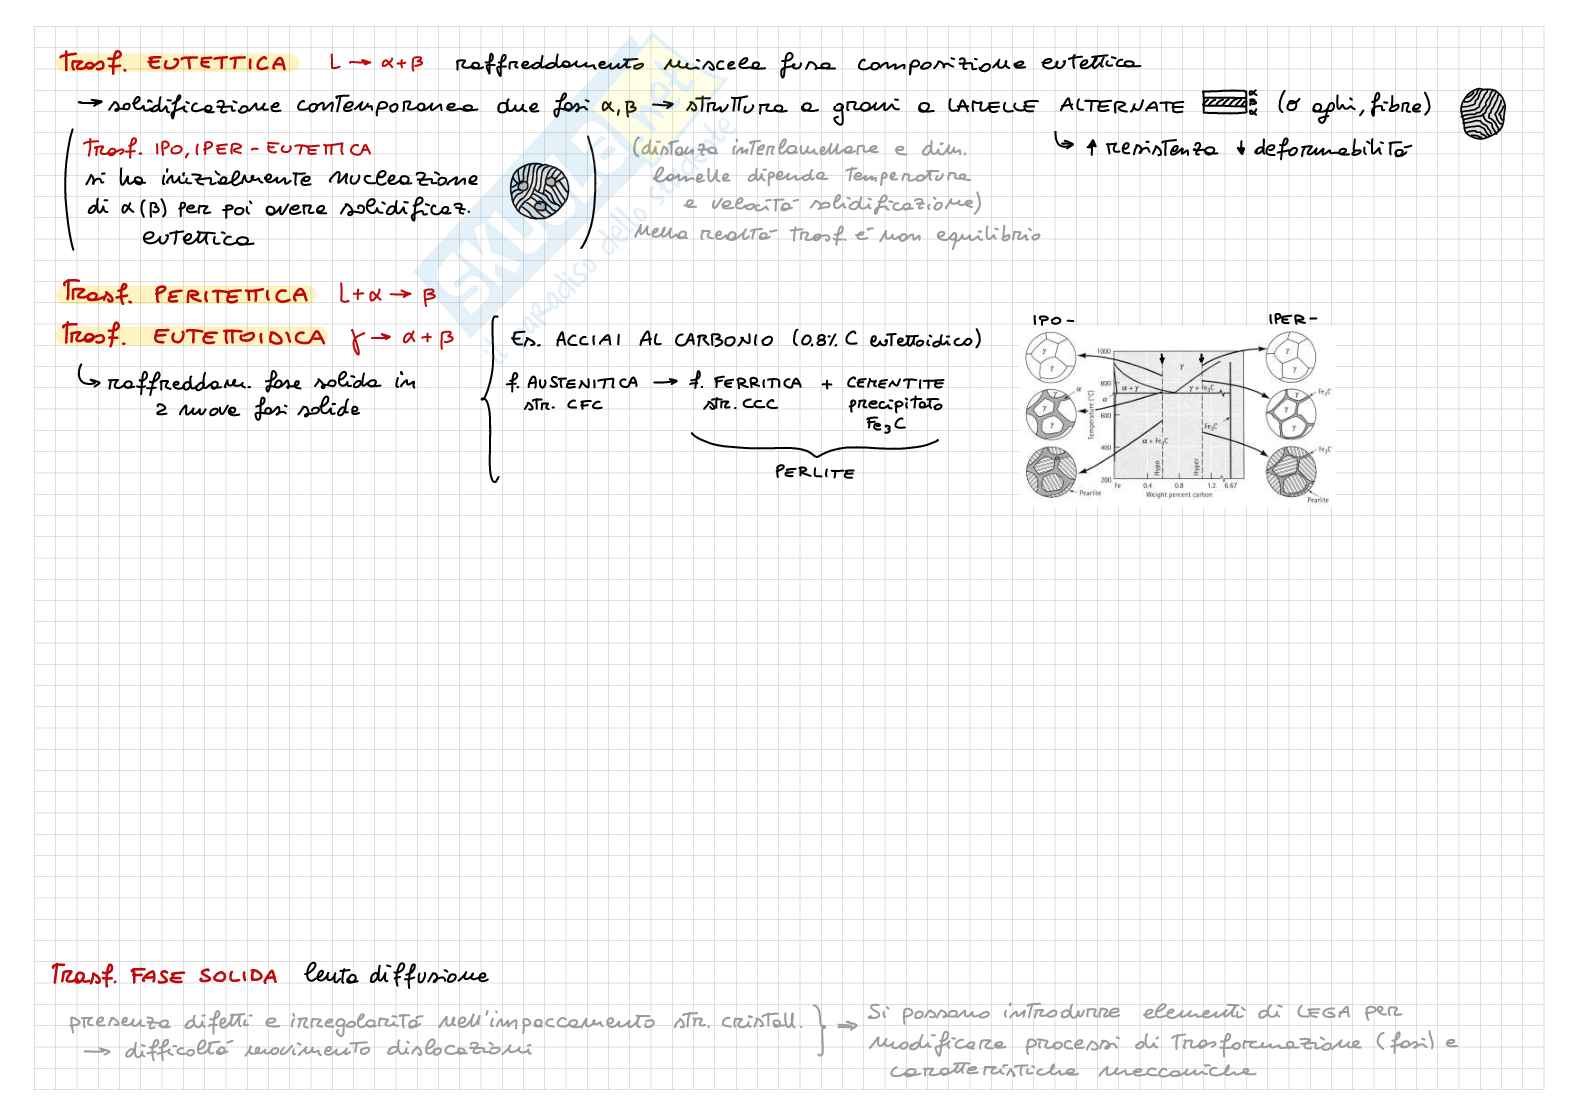 Trasf. EUTETTICA L → α+β raffreddamento miscela fusa composizione eutettica
→ solidificazione contemporanea due fasi α,β → struttura a grani a LAMELLE ALTERNATE α β α (o aghi, fibre)
↳ ↑ resistenza ↓ deformabilità
Trasf. IPO, IPER - EUTETTICA
si ha inizialmente nucleazione
di α(β) per poi avere solidificaz.
eutettica
(distanza interlamellare e dim.
lamelle dipenda temperatura
e velocità solidificazione)
Nella realtà trasf. è non equilibrio
Trasf. PERITETTICA L+α → β
Trasf. EUTETTOIDICA γ → α+β
↳ raffreddam. fase solida in
2 nuove fasi solide
Es. ACCIAI AL CARBONIO (0,8% C eutettoidico)
f. AUSTENITICA → f. FERRITICA + CEMENTITE
str. CFC str. CCC precipitato
Fe₃C
PERLITE
IPO- IPER-
1000
800
600
400
200
Temperature (°C)
γ
α + γ
γ + Fe₃C
α
α + Fe₃C
Fe₃C
Hypo
Hyper
Fe 0.4 0.8 1.2 6.67
Weight percent carbon
γ
α
γ
Pearlite
γ
Fe₃C
γ
Fe₃C
Pearlite
Trasf. FASE SOLIDA lenta diffusione
presenza difetti e irregolarità nell'impaccamento str. cristall.
→ difficoltà movimento dislocazioni
⇒ Si possono introdurre elementi di LEGA per
modificare processi di trasformazione (fasi) e
caratteristiche meccaniche
SKUOLA.net
il paradiso dello studente